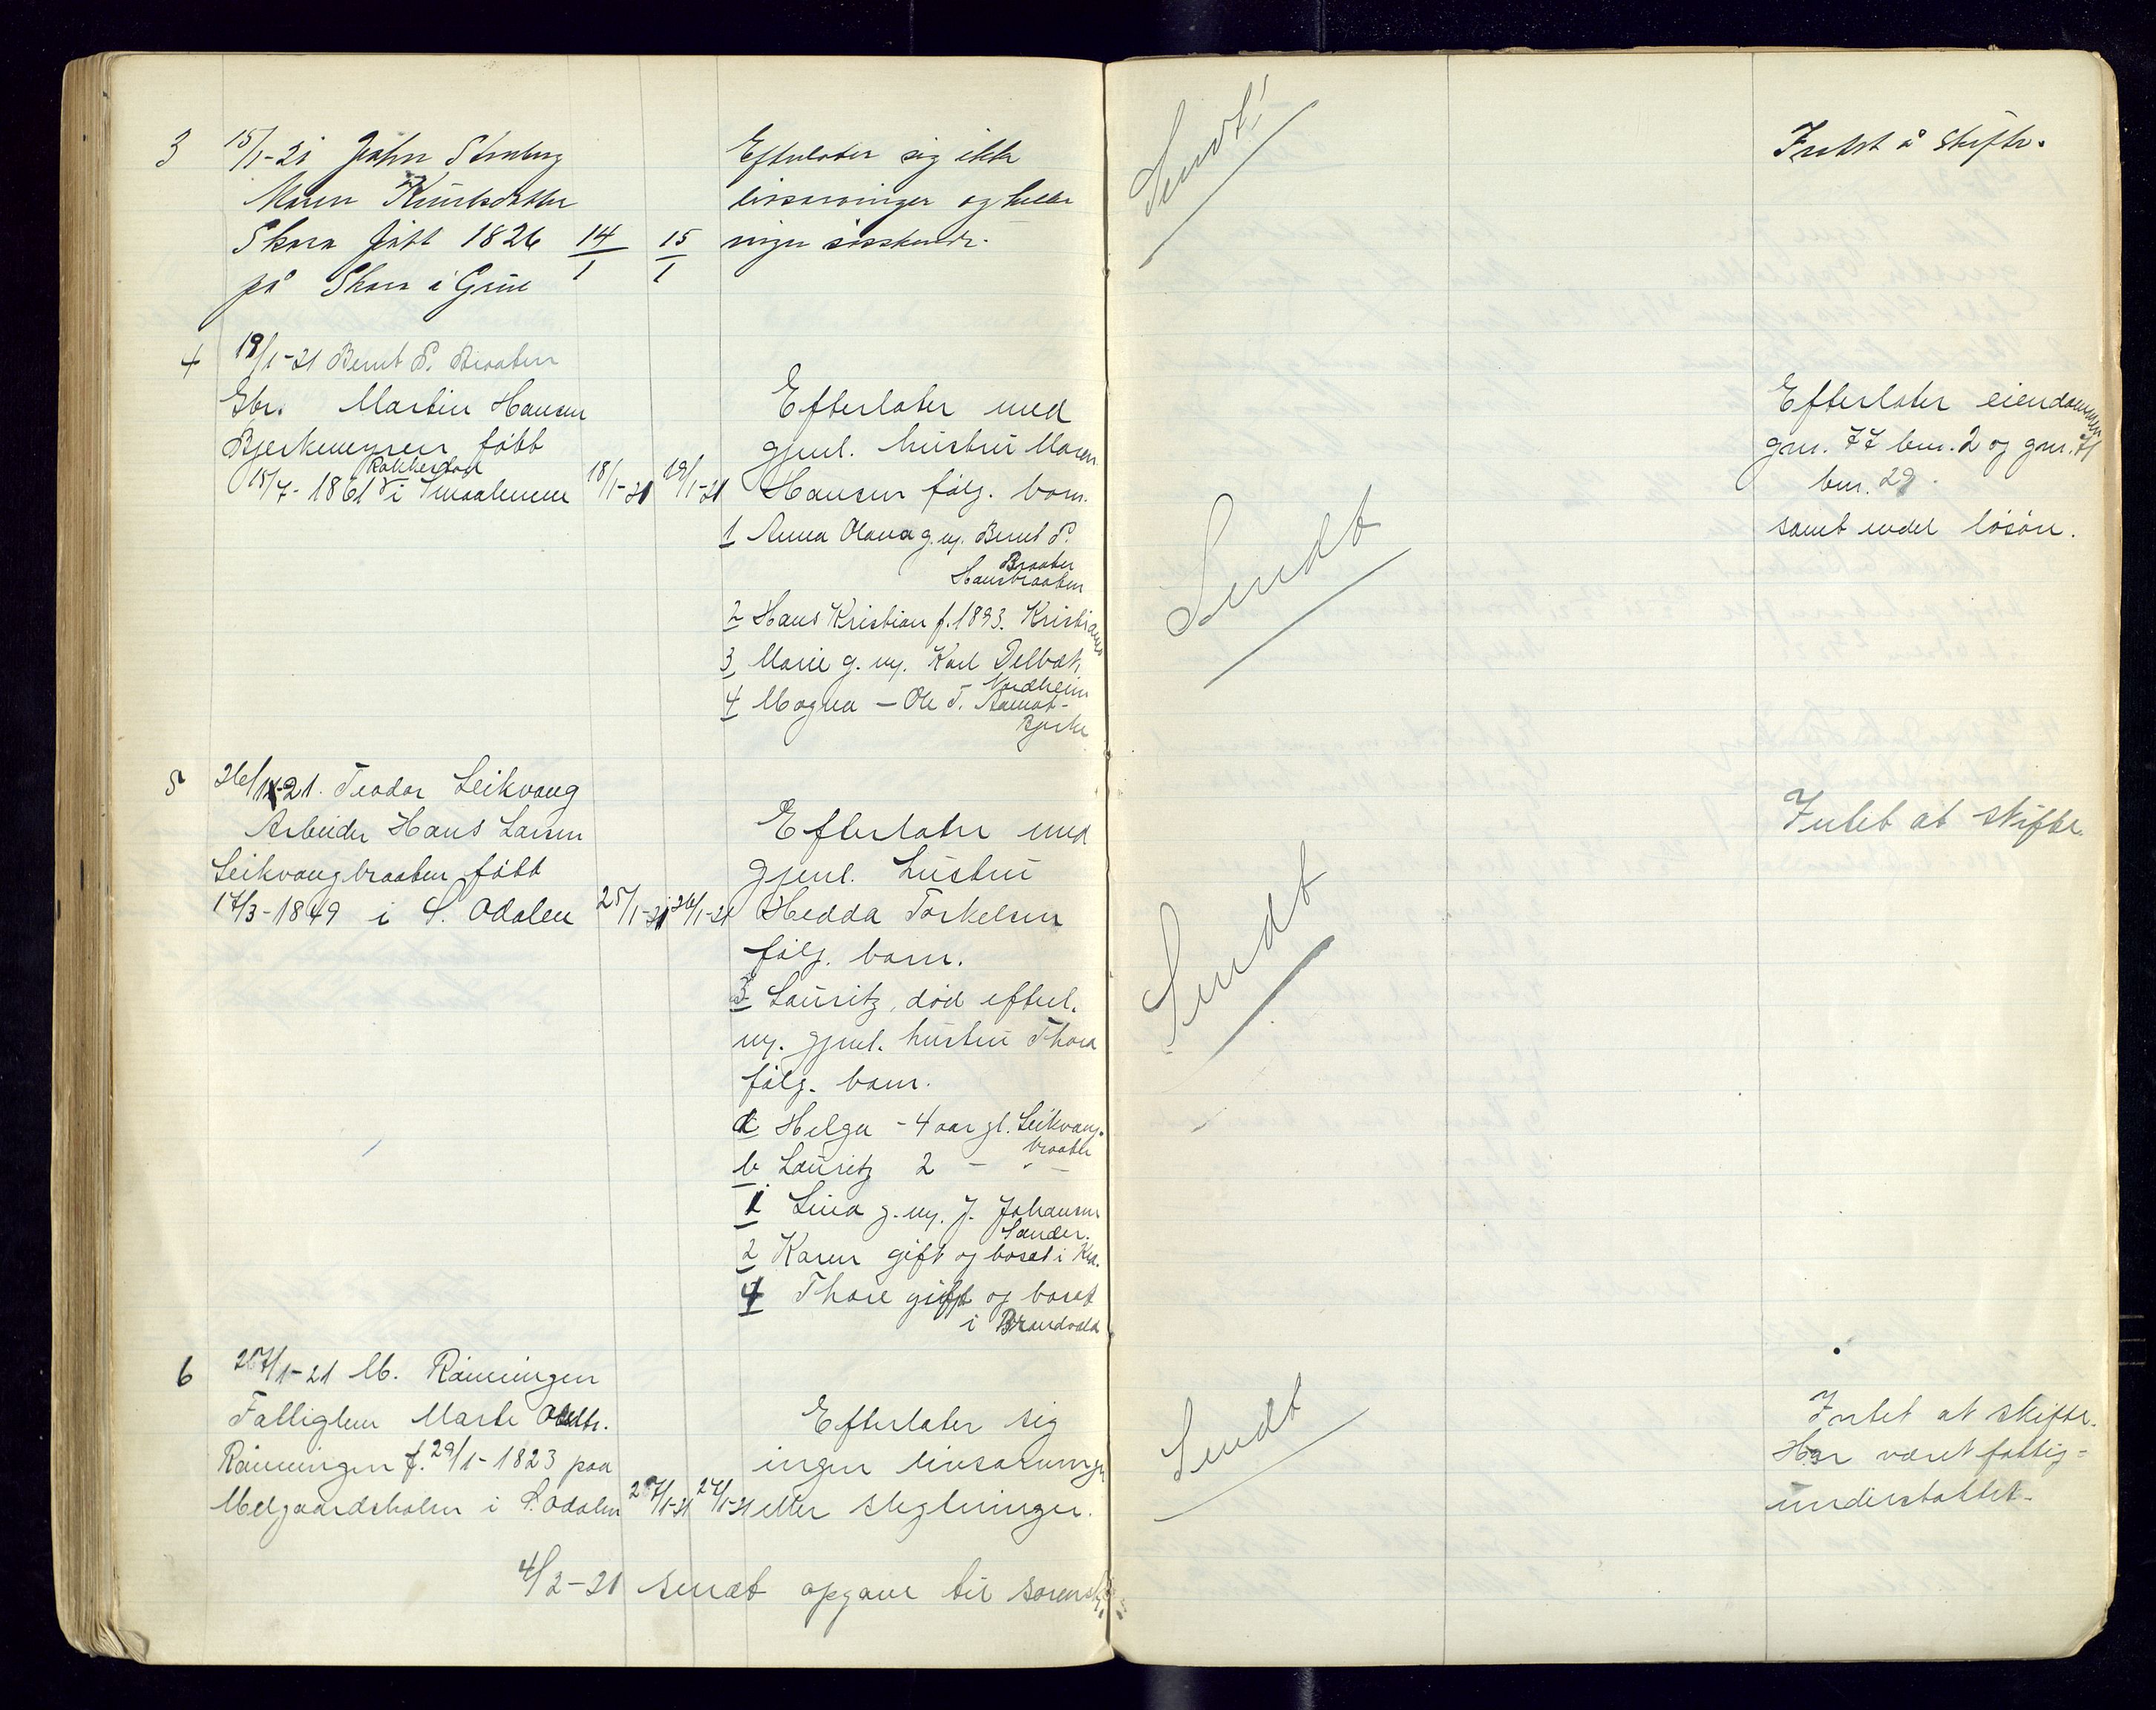 3 15/1-21 John Stenberg
Maren Knutsdatter
Skara født 1826 14/1 15/1
på Skara i Grue
Efterlater sig ikke
livsarvinger og heller
ingen søsskende.
Sendt!
Intet å skifte.
4 19/1-21 Bernt P. Braaten
Gbr. Martin Hansen
Bjerkemyren født
Rakkestad
15/7-1861 i Smaalenene 18/1-21 19/1-21
Efterlater med
gjenl. hustru Maren
Hansen følg. barn.
1 Anna Olava g. m. Bernt P.
Braaten
Hansbraaten
2 Hans Kristian f. 1893. Kristiania
3 Marie g. m. Karl Delbæk,
Nordheim
4 Magna — Ole T. Aamot-
Bjerke
Sendt
Efterlater eiendommen
gnr. 77 bnr. 2 og gnr. 71
bnr. 29.
samt endel løsøre.
5 26/1-21. Teodor Leikvang
Arbeider Hans Larsen
Leikvangbraaten født
17/3-1849 i S. Odalen 25/1-21 26/1-21
Efterlater med
gjenl. hustru
Hedda Torkelsen
følg. barn.
3 Lauritz, død efterl.
m. gjenl. hustru Thora
følg. barn.
a Helga - 4 aar gl. Leikvang-
braaten
b Lauritz 2 — " —
1 Lina g. m. J. Johansen
Sander.
2 Karen gift og bosat i Kra.
4 Thore gift og bosat
i Brandvald
Sendt
Intet at skifte.
6 27/1-21 M. Rønningen
Fattiglem Marte Olsdtr.
Rønningen f. 29/1-1823 paa
Melgaardsholen i S. Odalen 27/1-21 27/1-21
Efterlater sig
ingen livsarvinger
eller slegtninger.
Sendt
Intet at skifte.
Har været fattig-
understøttet.
4/2-21 sendt opgave til sorensk.